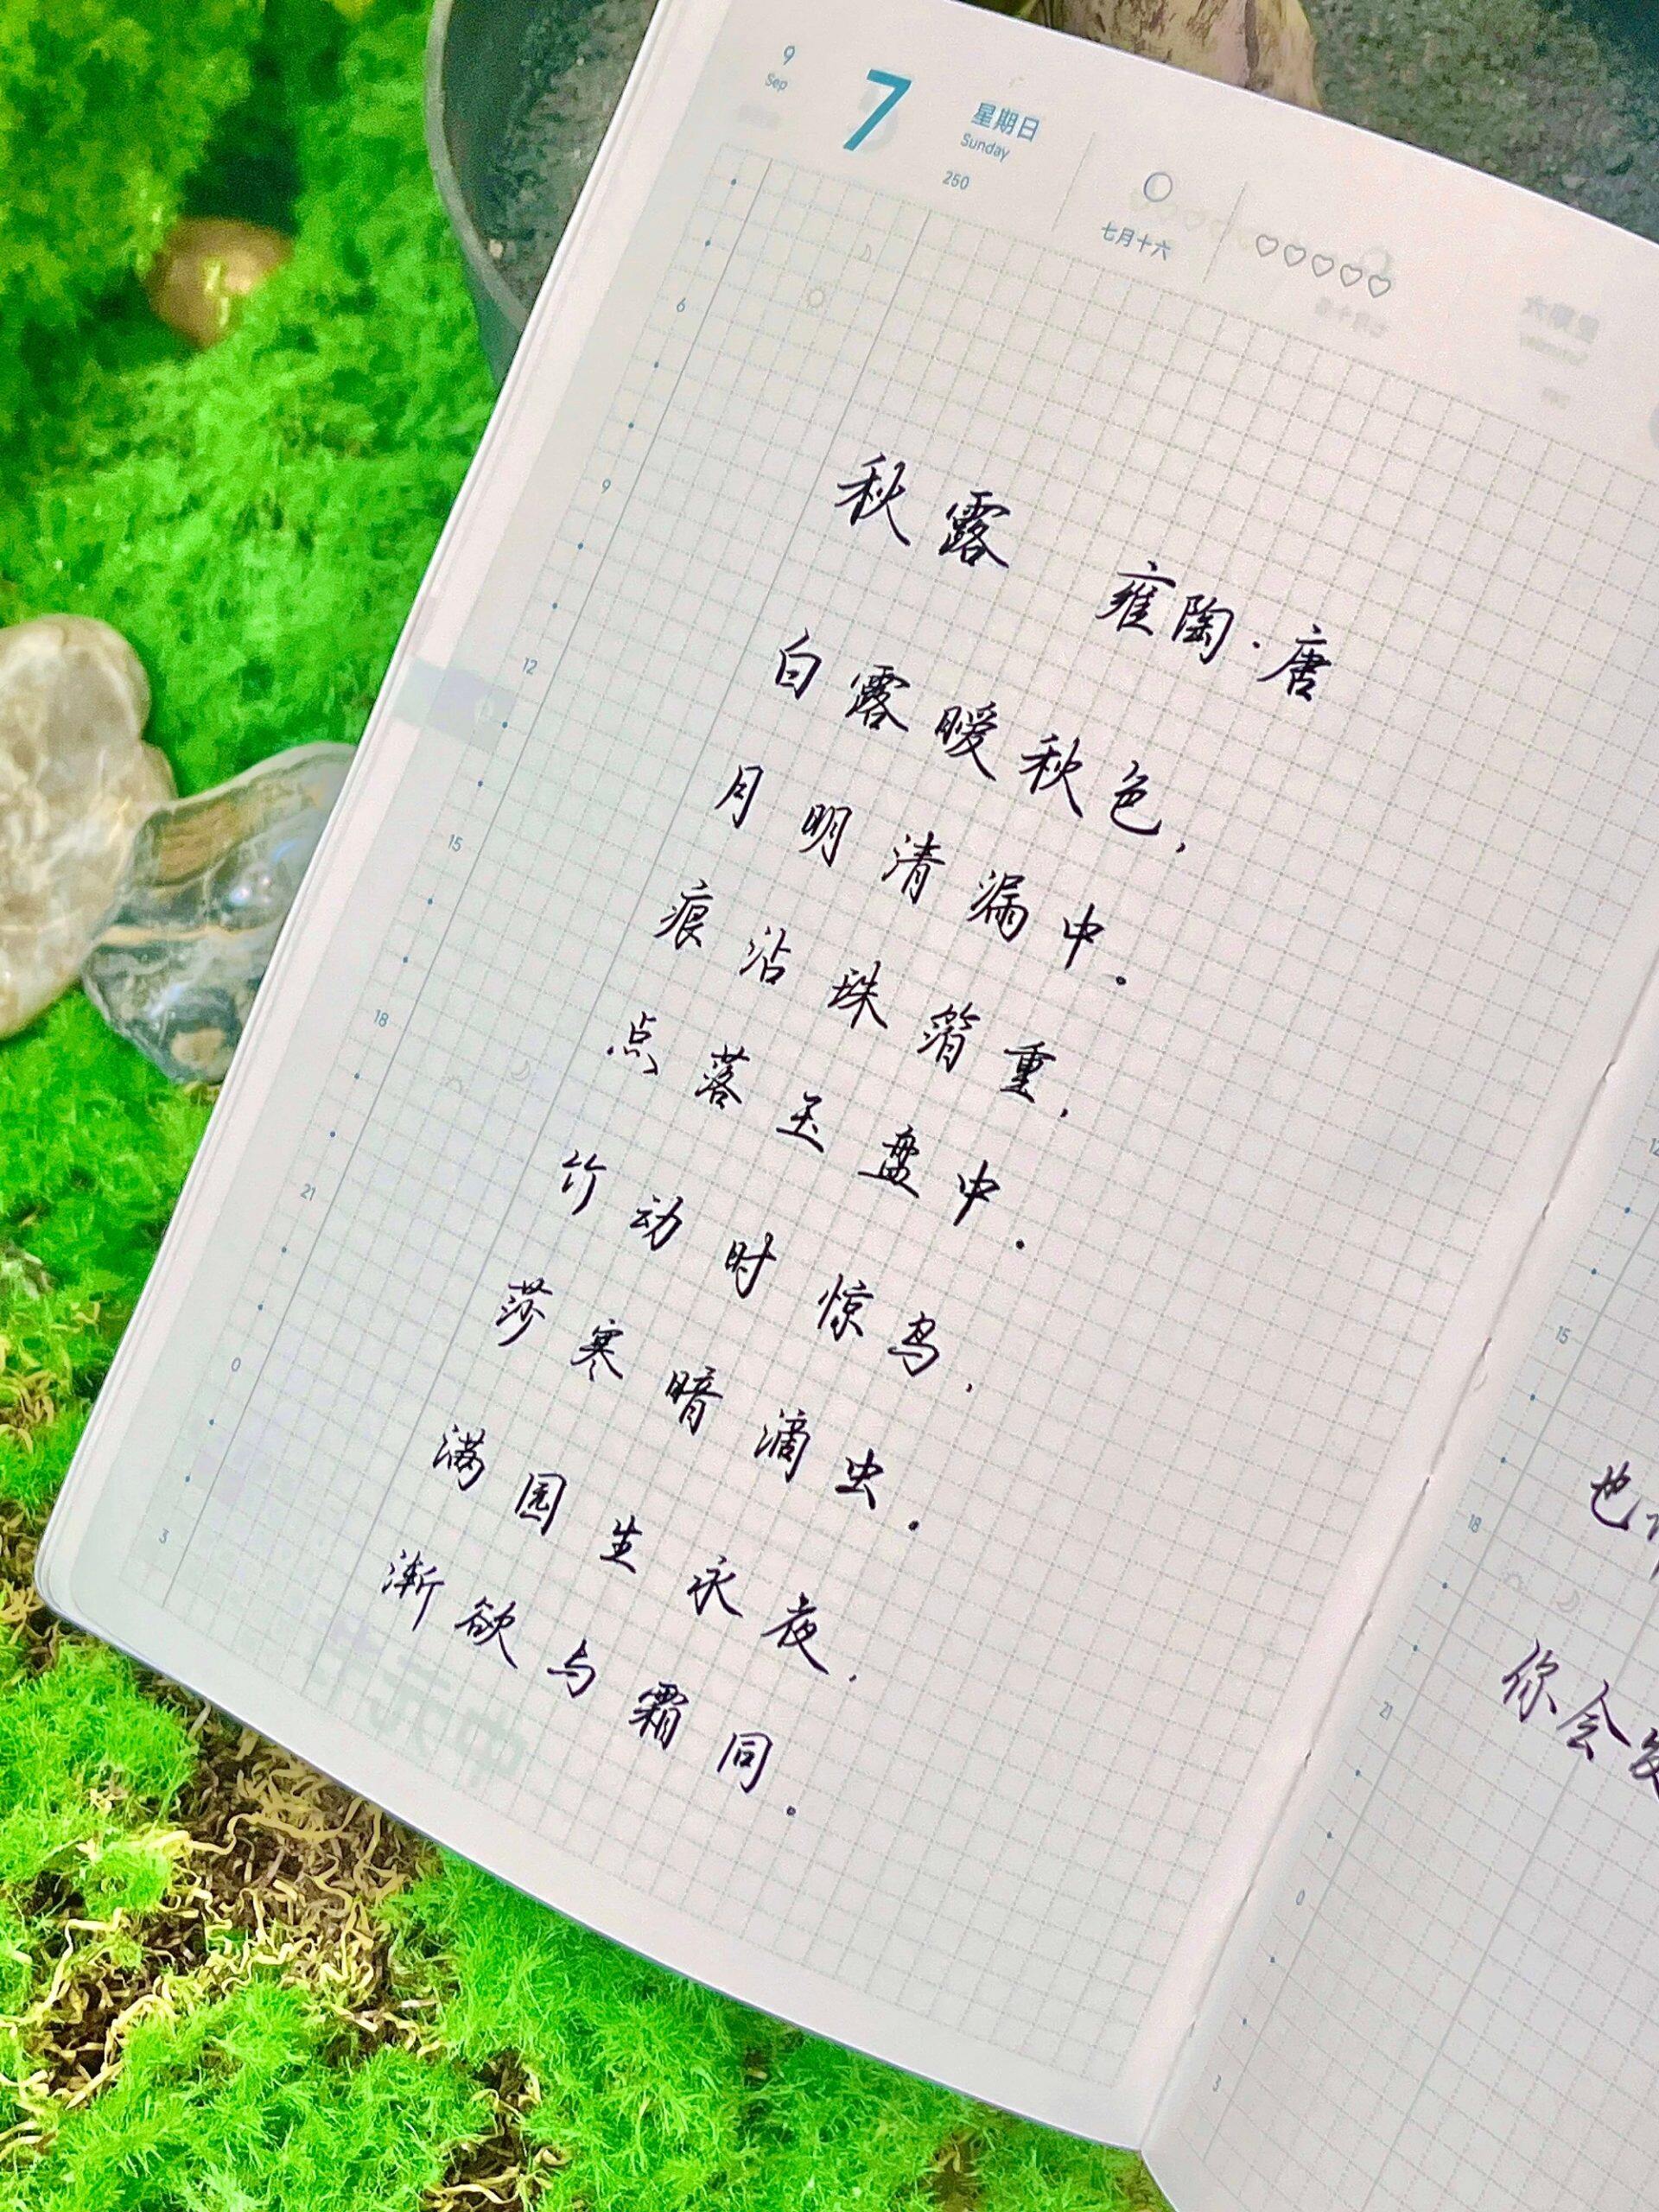 9
Sep
7
星期日
Sunday
250
七月十六
6
9
12
15
18
21
0
3
秋露 雍陶·唐
白露暧秋色，
月明清漏中。
痕沾珠箔重，
点落玉盘中．
竹动时惊鸟，
莎寒暗滴虫．
满园生永夜，
渐欲与霜同．
12
15
18
21
0
3
也
你会